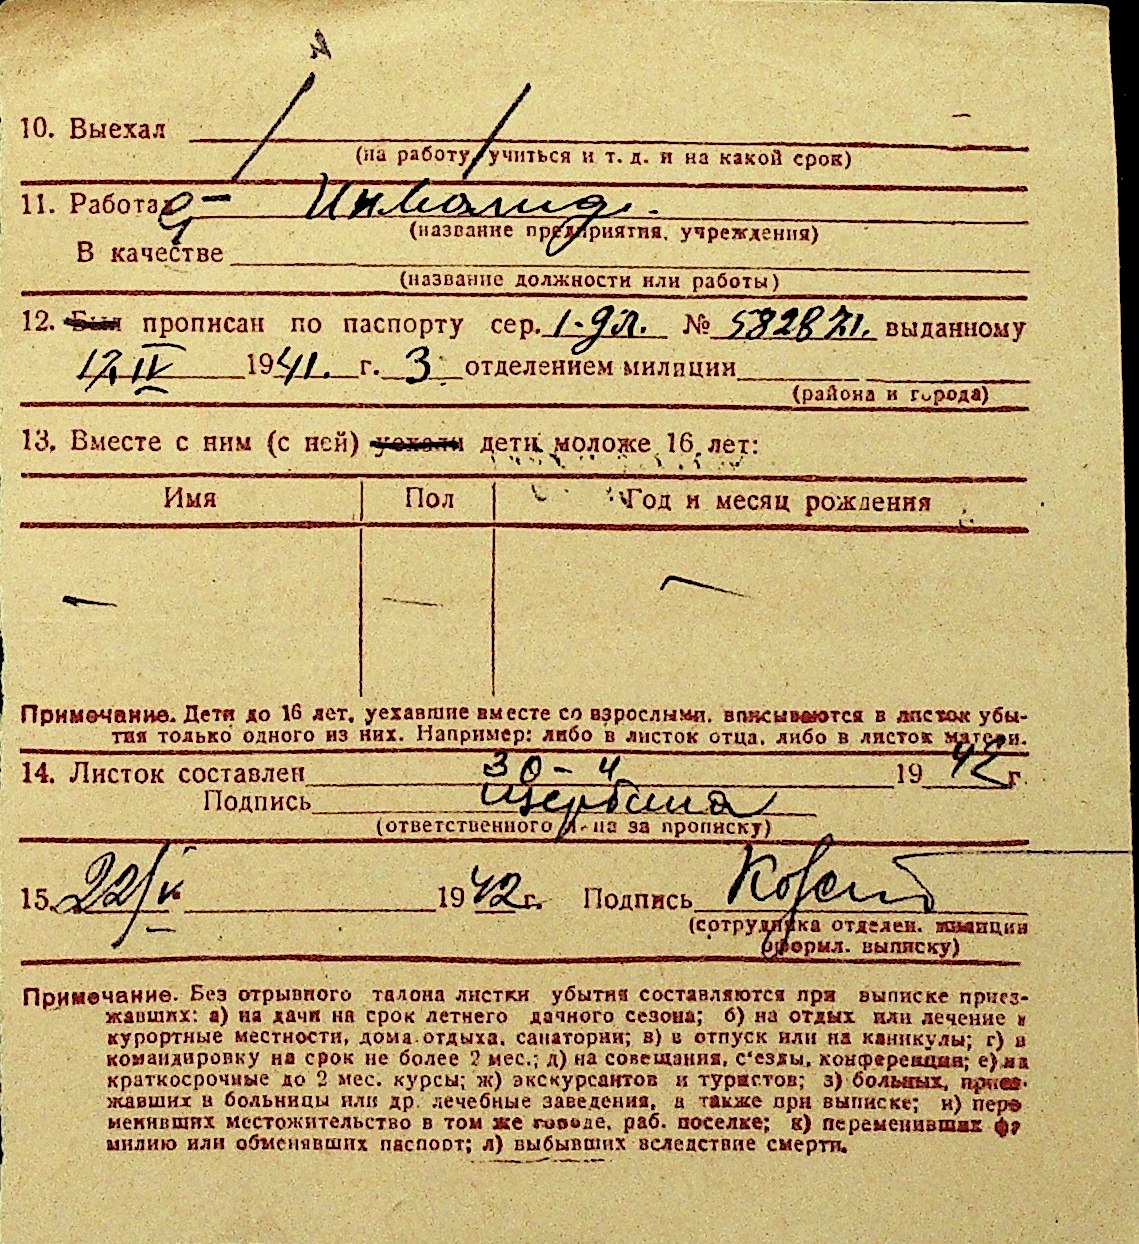 10. Выехал
(на работу, учиться и т. д. и на какой срок)
11. Работа Инвалид.
(название предприятия, учреждения)
В качестве
(название должности или работы)
12. Был прописан по паспорту сер. 1-дл. № 582871. выданному
17/IV 1941. г. 3 отделением милиции
(района и города)
13. Вместе с ним (с ней) уехали дети моложе 16 лет:
Имя Пол Год и месяц рождения
— — —
Примечание. Дети до 16 лет, уехавшие вместе со взрослыми, вписываются в листок убы-
тия только одного из них. Например: либо в листок отца, либо в листок матери.
14. Листок составлен 30-4 1942 г.
Подпись Щербина
(ответственного лица за прописку)
15. 22/V 1942 г. Подпись
(сотрудника отделен. милиции
оформл. выписку)
Примечание. Без отрывного талона листки убытия составляются при выписке приез-
жавших: а) на дачи на срок летнего дачного сезона; б) на отдых или лечение в
курортные местности, дома отдыха, санатории; в) в отпуск или на каникулы; г) в
командировку на срок не более 2 мес.; д) на совещания, с'езды, конференции; е) на
краткосрочные до 2 мес. курсы; ж) экскурсантов и туристов; з) больных, приез-
жавших в больницы или др. лечебные заведения, а также при выписке; и) пере
менивших местожительство в том же городе, раб. поселке; к) переменивших фа
милию или обменявших паспорт; л) выбывших вследствие смерти.